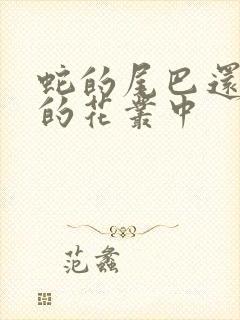 蛇的尾巴還
的花叢中
范蠡